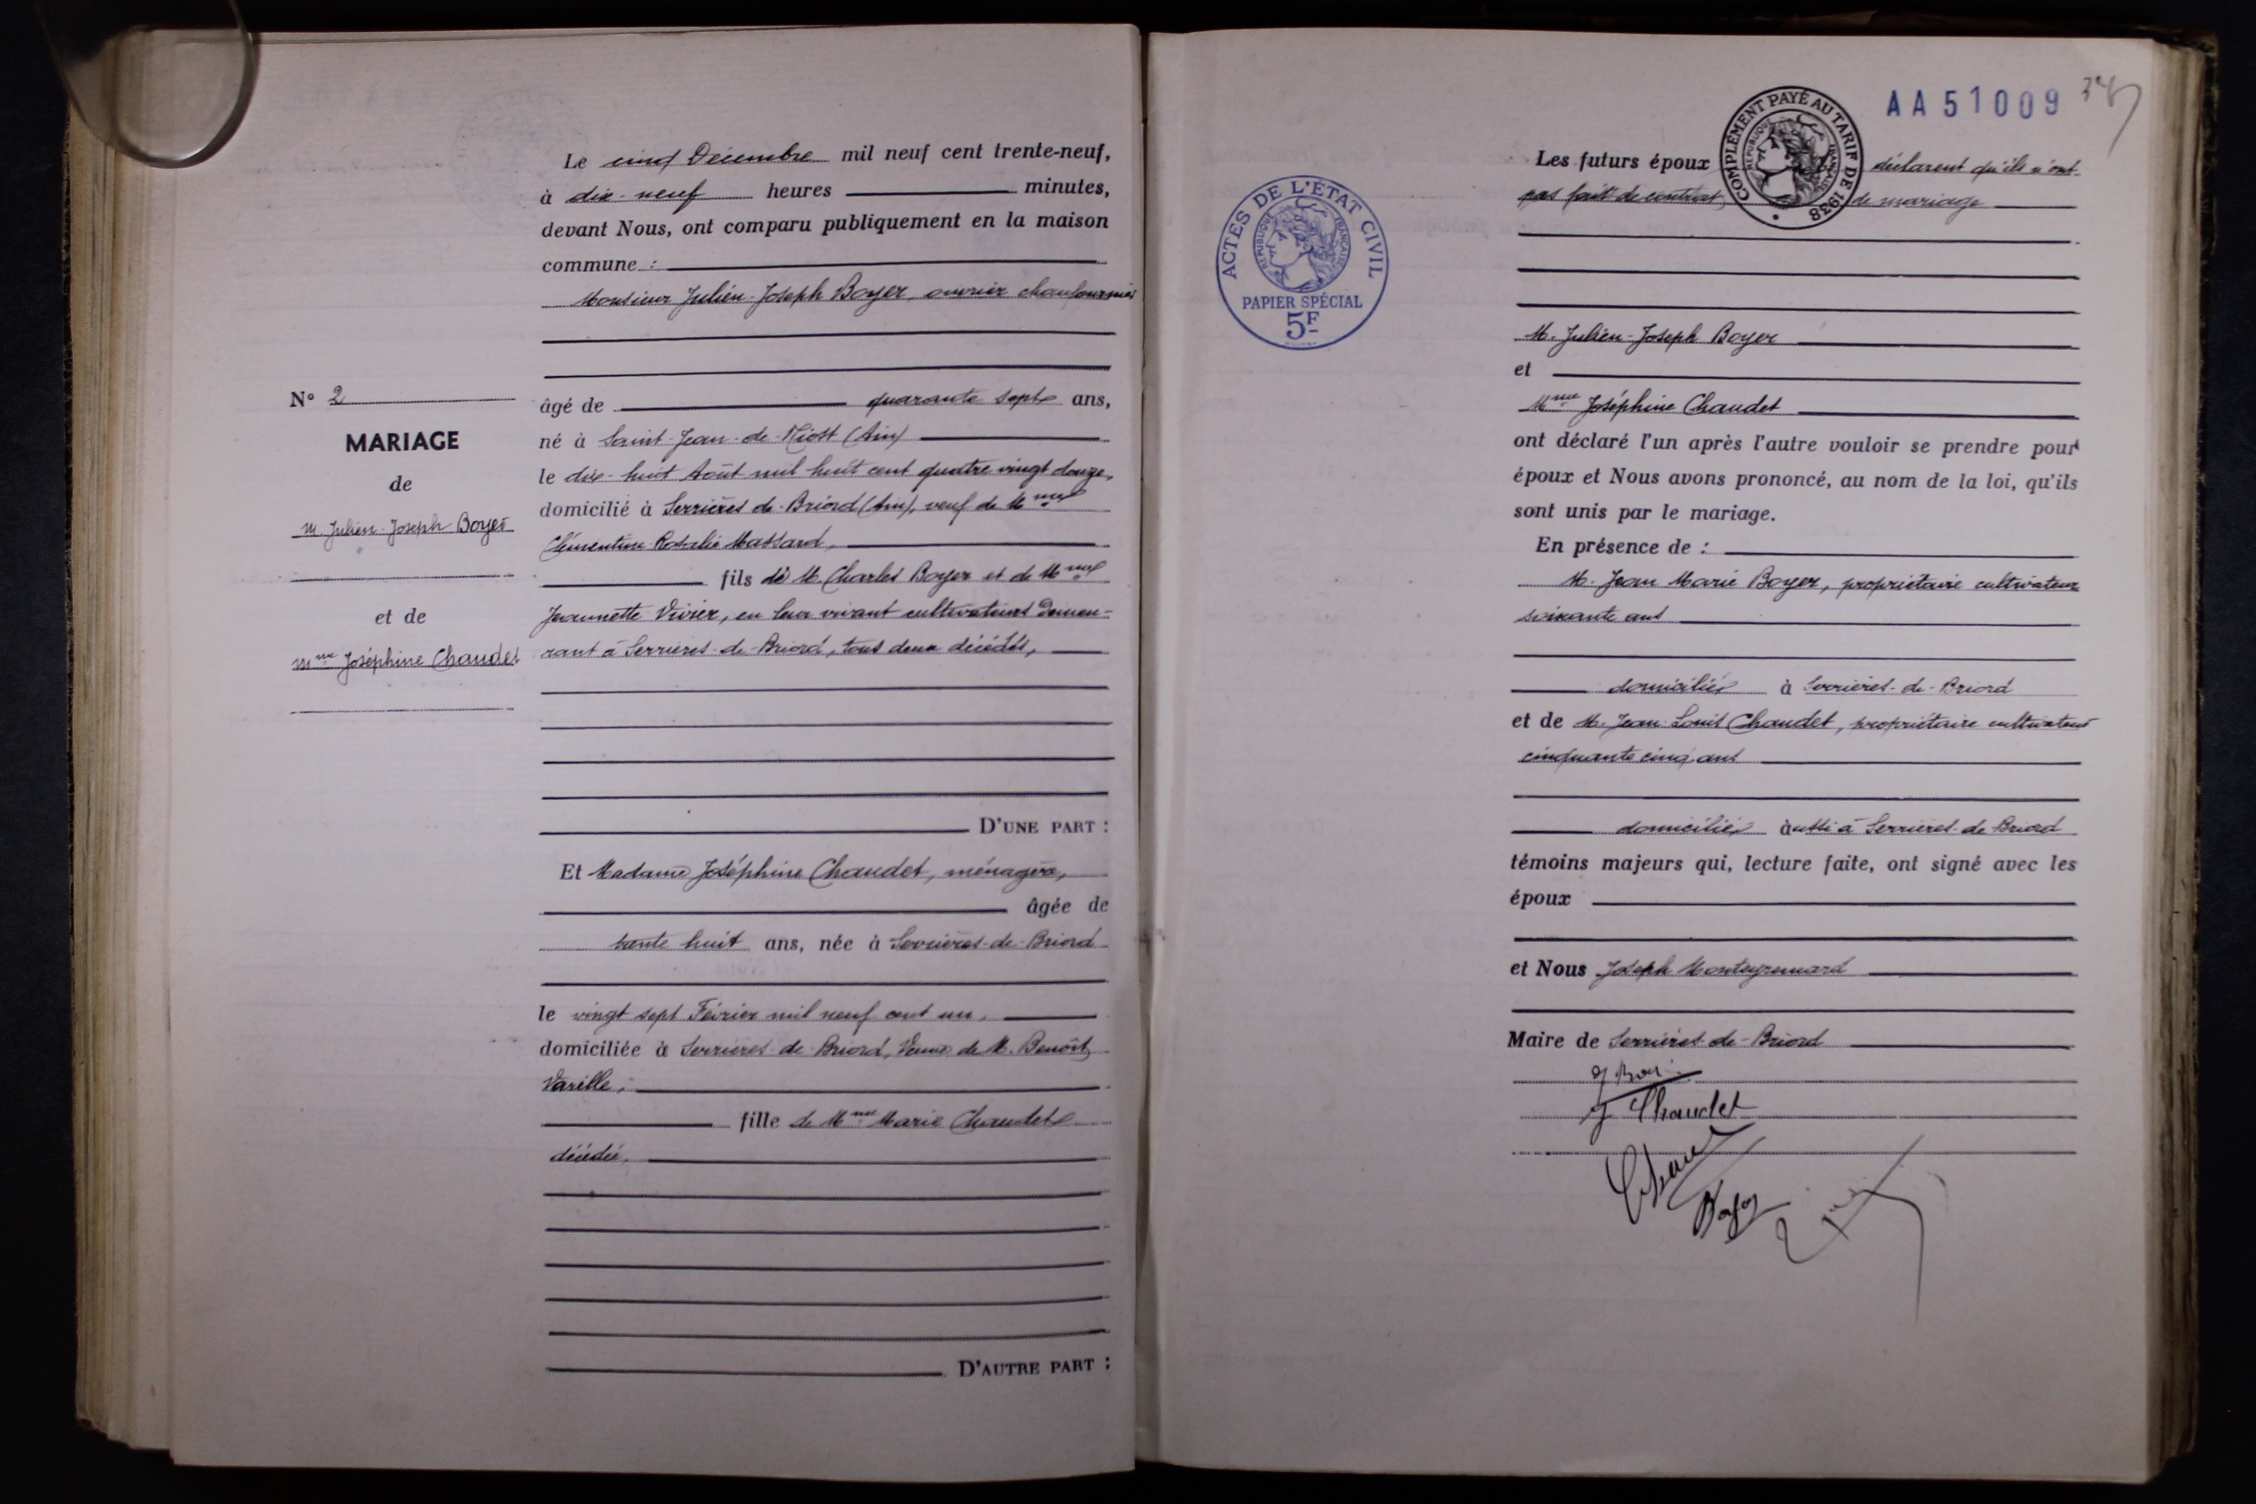 Le cinq Décembre mil neuf cent trente-neuf,
à dix-neuf heures minutes,
devant Nous, ont comparu publiquement en la maison
commune :
Monsieur Julien-Joseph Boyer, ouvrier chaufournier
âgé de quarante sept ans,
né à Saint-Jean-de-Niost (Ain)
le dix-huit Août mil huit cent quatre vingt douze,
domicilié à Serrières-de-Briord (Ain), veuf de Mme
Clémentine Rosalie Massard,
fils de M. Charles Boyer et de Mme
Jeannette Vivier, en leur vivant cultivateurs demeu-
rant à Serrières-de-Briord, tous deux décédés,
D'UNE PART :
Et Madame Joséphine Chaudet, ménagère,
âgée de
trente huit ans, née à Serrières-de-Briord
le vingt sept Février mil neuf cent un,
domiciliée à Serrières-de-Briord, Veuve de M. Benoît
Varille,
fille de Mme Marie Chaudet
décédée,
D'AUTRE PART :
N° 2
MARIAGE
de
M. Julien-Joseph Boyer
et de
Mme Joséphine Chaudet
AA51009
COMPLÉMENT PAYÉ AU TARIF DE 1938
RÉPUBLIQUE FRANÇAISE
ACTES DE L'ÉTAT CIVIL
RÉPUBLIQUE FRANÇAISE
PAPIER SPÉCIAL
5F
Les futurs époux déclarent qu'ils n'ont
pas fait de contrat de mariage
M. Julien-Joseph Boyer
et
Mme Joséphine Chaudet
ont déclaré l'un après l'autre vouloir se prendre pour
époux et Nous avons prononcé, au nom de la loi, qu'ils
sont unis par le mariage.
En présence de :
M. Jean Marie Boyer, propriétaire cultivateur
soixante ans
domicilié à Serrières-de-Briord
et de M. Jean-Louis Chaudet, propriétaire cultivateur
cinquante cinq ans
domicilié aussi à Serrières-de-Briord
témoins majeurs qui, lecture faite, ont signé avec les
époux
et Nous Joseph
Maire de Serrières-de-Briord
J Chaudet